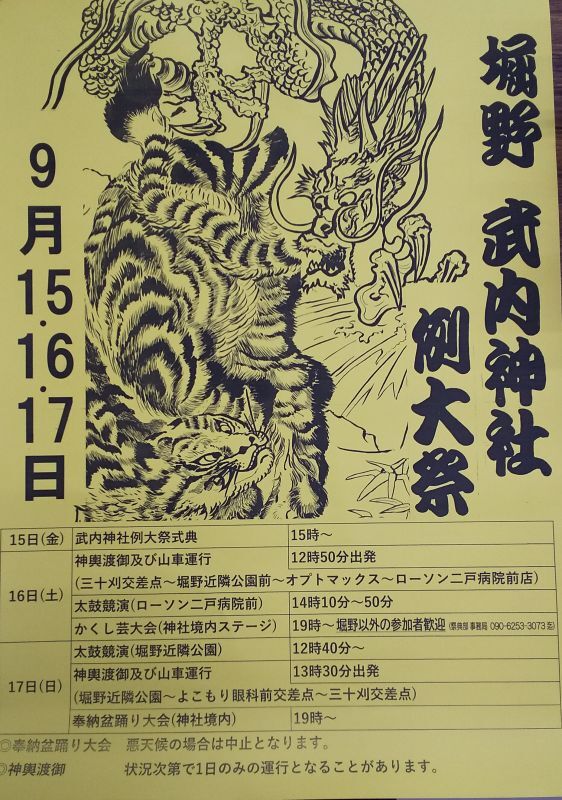 堀野 武内神社
例大祭
9月15・16・17日
15日(金) 武内神社例大祭式典 15時～
16日(土) 神輿渡御及び山車運行 12時50分出発
(三十刈交差点～堀野近隣公園前～オプトマックス～ローソン二戸病院前店)
太鼓競演(ローソン二戸病院前) 14時10分～50分
かくし芸大会(神社境内ステージ) 19時～堀野以外の参加者歓迎(祭典部 事務局 090-6253-3073 迄)
17日(日) 太鼓競演(堀野近隣公園) 12時40分～
神輿渡御及び山車運行 13時30分出発
(堀野近隣公園～よこもり眼科前交差点～三十刈交差点)
奉納盆踊り大会(神社境内) 19時～
◎奉納盆踊り大会 悪天候の場合は中止となります。
◎神輿渡御 状況次第で1日のみの運行となることがあります。